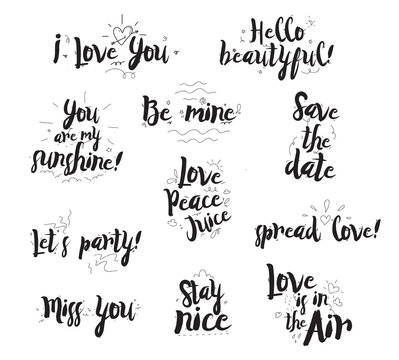 i Love You
Hello
beautyful!
You
are my
sunshine!
Be mine
Save
the
date
Love
Peace
Juice
Let's party!
spread Love!
Miss You
Stay
nice
Love
is in
the Air